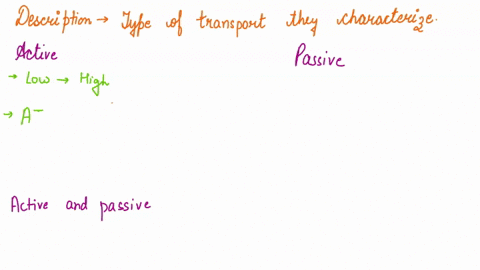 Description → Type of transport they characterize.
Active
Passive
→ Low → High
→ A
Active and passive